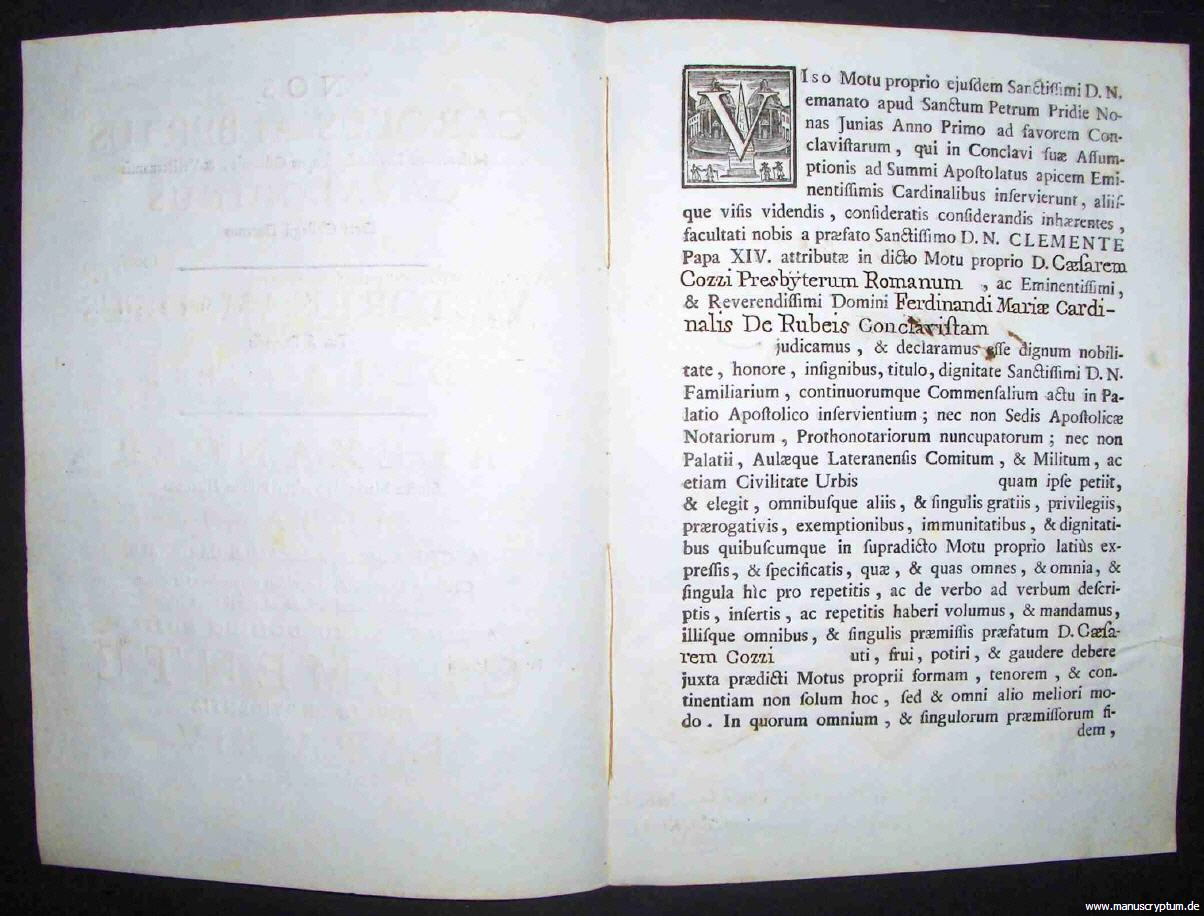 VIso Motu proprio ejuſdem Sanctiſſimi D. N.
emanato apud Sanctum Petrum Pridie No-
nas Junias Anno Primo ad favorem Con-
claviſtarum, qui in Conclavi ſuæ Aſſum-
ptionis ad Summi Apoſtolatus apicem Emi-
nentiſſimis Cardinalibus inſervierunt, aliiſ-
que viſis videndis, conſideratis conſiderandis inhærentes,
facultati nobis a præfato Sanctiſſimo D. N. CLEMENTE
Papa XIV. attributæ in dicto Motu proprio D. Cæſarem
Cozzi Presbÿterum Romanum , ac Eminentiſſimi,
& Reverendiſſimi Domini Ferdinandi Mariæ Cardi-
nalis De Rubeis Conclaviſtam
judicamus, & declaramus eſſe dignum nobili-
tate, honore, inſignibus, titulo, dignitate Sanctiſſimi D. N.
Familiarium, continuorumque Commenſalium actu in Pa-
latio Apoſtolico inſervientium; nec non Sedis Apoſtolicæ
Notariorum, Prothonotariorum nuncupatorum; nec non
Palatii, Aulæque Lateranenſis Comitum, & Militum, ac
etiam Civilitate Urbis quam ipſe petiit,
& elegit, omnibuſque aliis, & ſingulis gratiis, privilegiis,
prærogativis, exemptionibus, immunitatibus, & dignitati-
bus quibuſcumque in ſupradicto Motu proprio latiùs ex-
preſſis, & ſpecificatis, quæ, & quas omnes, & omnia, &
ſingula hìc pro repetitis, ac de verbo ad verbum deſcri-
ptis, inſertis, ac repetitis haberi volumus, & mandamus,
illiſque omnibus, & ſingulis præmiſſis præfatum D. Cæſa-
rem Cozzi uti, frui, potiri, & gaudere debere
juxta prædicti Motus proprii formam, tenorem, & con-
tinentiam non ſolum hoc, ſed & omni alio meliori mo-
do. In quorum omnium, & ſingulorum præmiſſorum fi-
dem,
www.manuscryptum.de